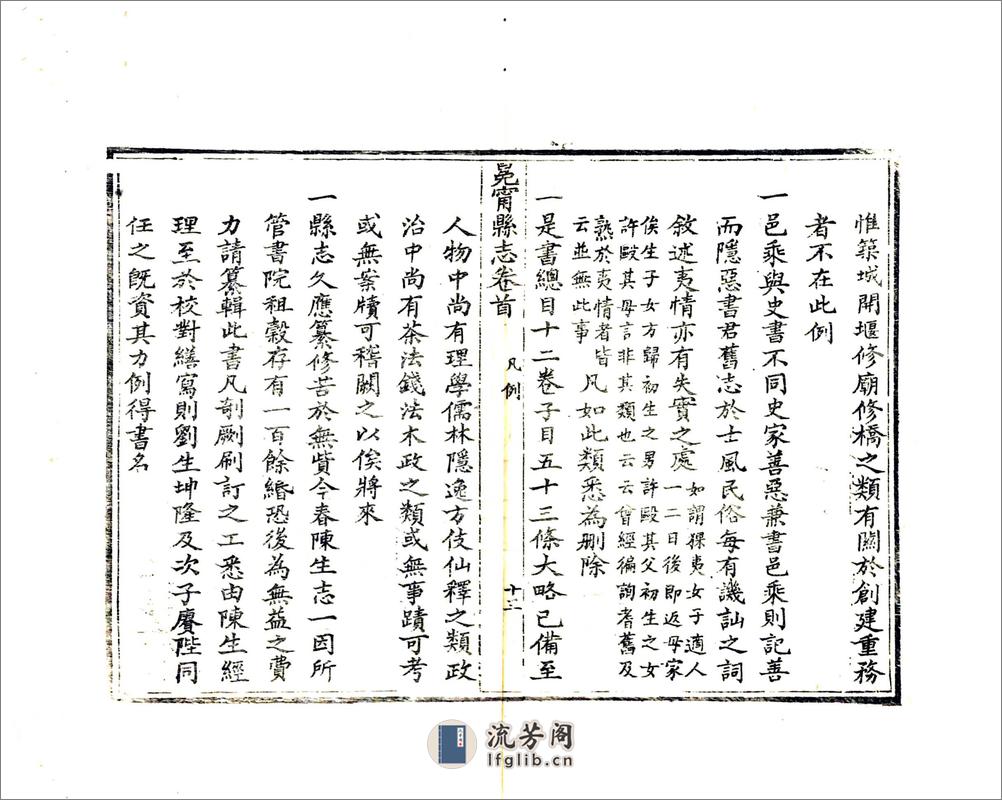 惟築城開堰修廟修橋之類有關於創建重務
者不在此例
一邑乘與史書不同史家善惡兼書邑乘則記善
而隱惡書君舊志於士風民俗每有譏訕之詞
敘述夷情亦有失實之處如謂猓夷女子適人
一二日後即返母家
俟生子女方歸初生之男許毆其父初生之女
許毆其母言非其類也云云曾經徧詢耆舊及
熟於夷情者皆
云並無此事
凡如此類悉為刪除
一是書總目十二卷子目五十三條大略已備至
冕甯縣志卷首
凡例
十三
人物中尚有理學儒林隱逸方伎仙釋之類政
治中尚有茶法錢法木政之類或無事蹟可考
或無案牘可稽闕之以俟將來
一縣志久應纂修苦於無貲今春陳生志一因所
管書院租穀存有一百餘緡恐後為無益之費
力請纂輯此書凡剞劂刷訂之工悉由陳生經
理至於校對繕寫則劉生坤隆及次子賡陛同
任之既資其力例得書名
流芳阁
lfglib.cn